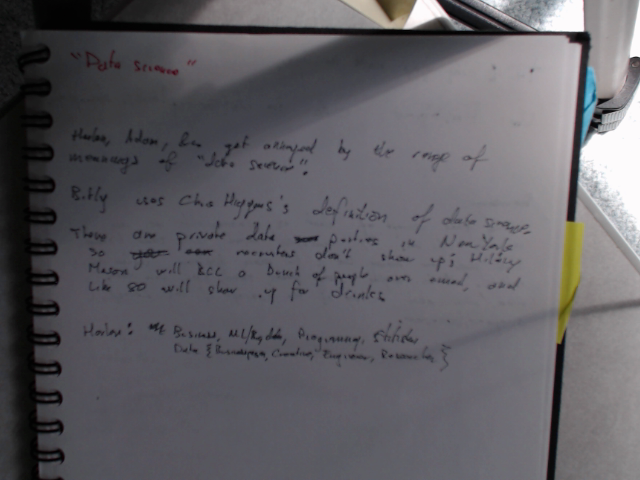 "Data science"
Harlan, Adam, Ben get annoyed by the range of
meanings of "data science".
Bitly uses Chris Wiggins's definition of data science.
There are private data parties in New York
so recruiters don't show up; Hilary
Mason will BCC a bunch of people over email, and
like 80 will show up for drinks
Harlan: Business, ML/Big data, Programming, Statistics
Data {Businessperson, Creative, Engineer, Researcher}